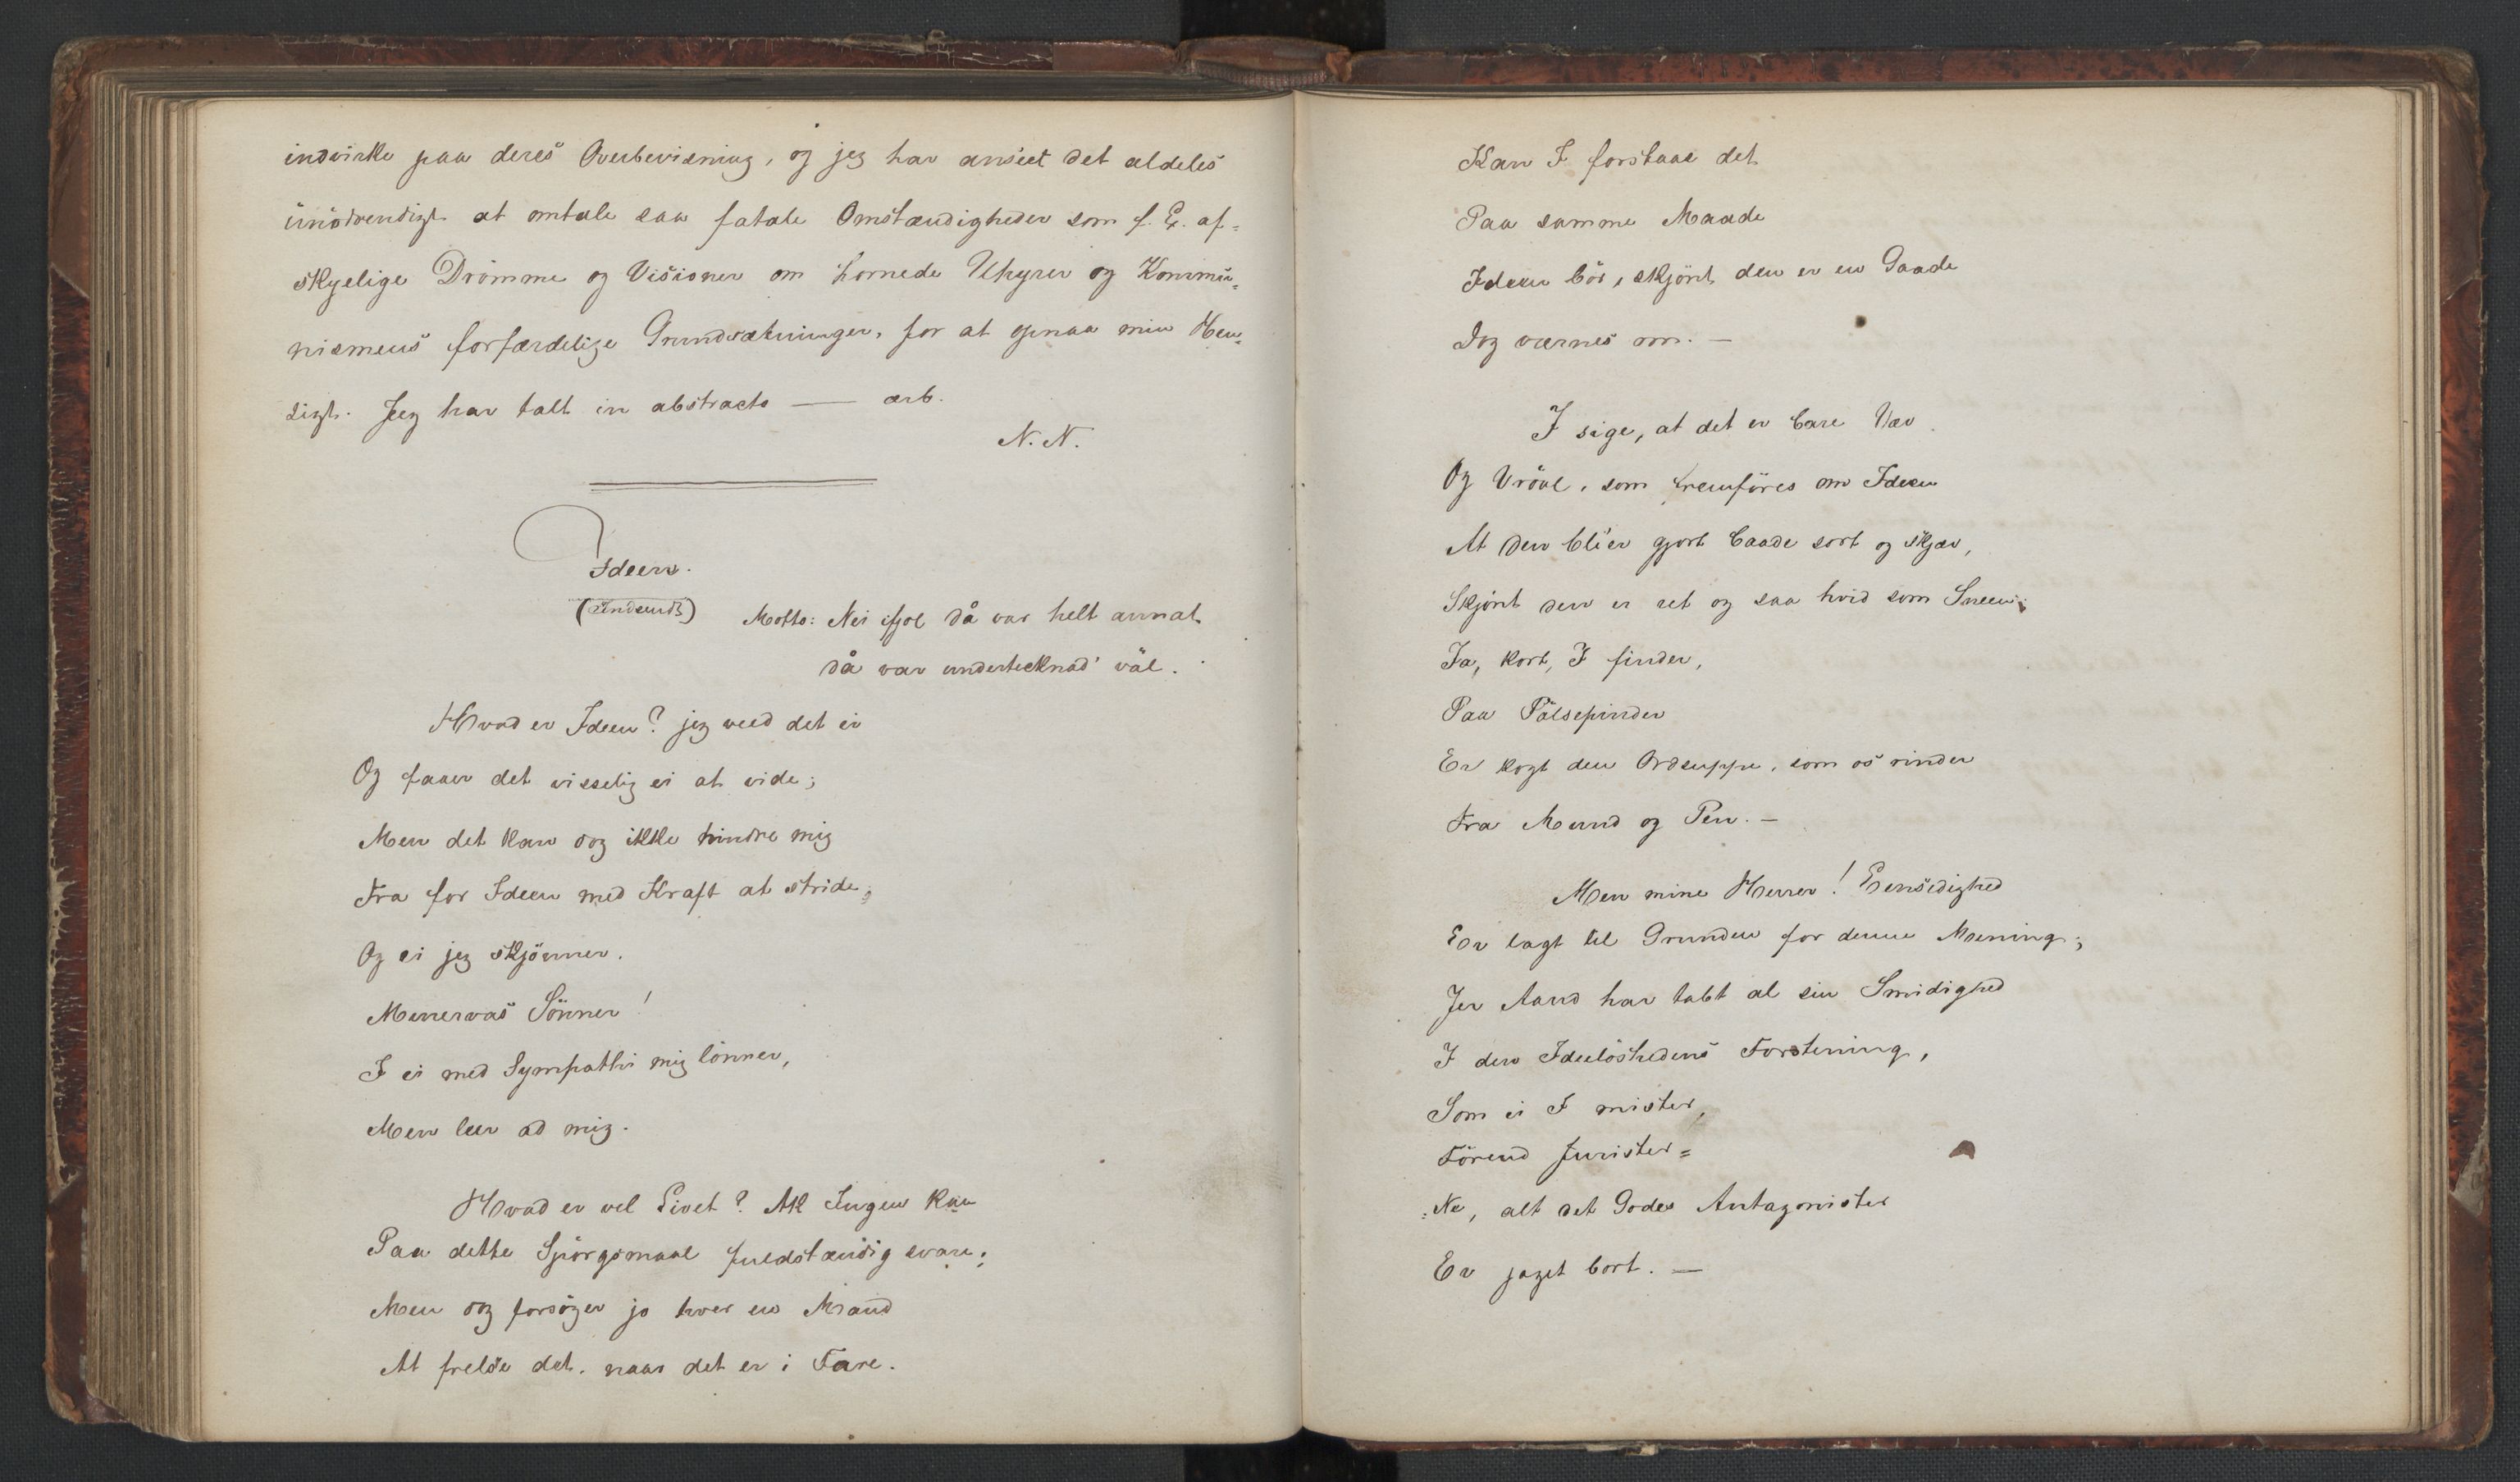 indvirke paa deres Overbevisning, og jeg har anseet det aldeles
unödvendigt at omtale saa fatale Omstændigheder som f. Ex. af=
skyelige Drömme og Visioner om hornede Uhyrer og Kommu=
nismens forfærdelige Grundsætninger, for at opnaa min Hen=
sigt. Jeg har talt in abstracto — arb.
N. N.
Ideen.
(Indsendt)
Motto: Nei ifjol då var helt annat
då var undertecknad' väl.
Hvad er Ideen? jeg veed det ei
Og faaer det visselig ei at vide;
Men det kan dog ikke hindre mig
Fra for Ideen med Kraft at stride,
Og ei jeg skjönner,
Minervas Sönner!
I ei med Sympathi mig lönner,
Men leer ad mig.
Hvad er vel Livet? Ak Ingen kan
Paa dette Spörgsmaal fuldstændig svare;
Men dog forsöger jo hver en Mand
At frelse det, naar det er i Fare.
Kan I forstaae det
Paa samme Maade
Ideen bör, skjönt den er en Gaade
Dog værnes om. —
I sige, at det er bare Væv
Og Vrövl, som fremföres om Ideen
At den bli'er gjort baade sort og skjæv,
Skjönt den er ret og saa hvid som Sneen;
Ja, kort, I finder,
Paa Pölsepinder
Er kogt den Ordsuppe, som os rinder
Fra Mund og Pen. —
Men mine Herrer! Eensidighed
Er lagt til Grunden for denne Mening;
Jer Aand har tabt al sin Smidighed
I den Ideelöshedens Forstening,
Som ei I mister,
Förend Jurister=
=Ne, alt det Godes Antagonister
Er jaget bort. —